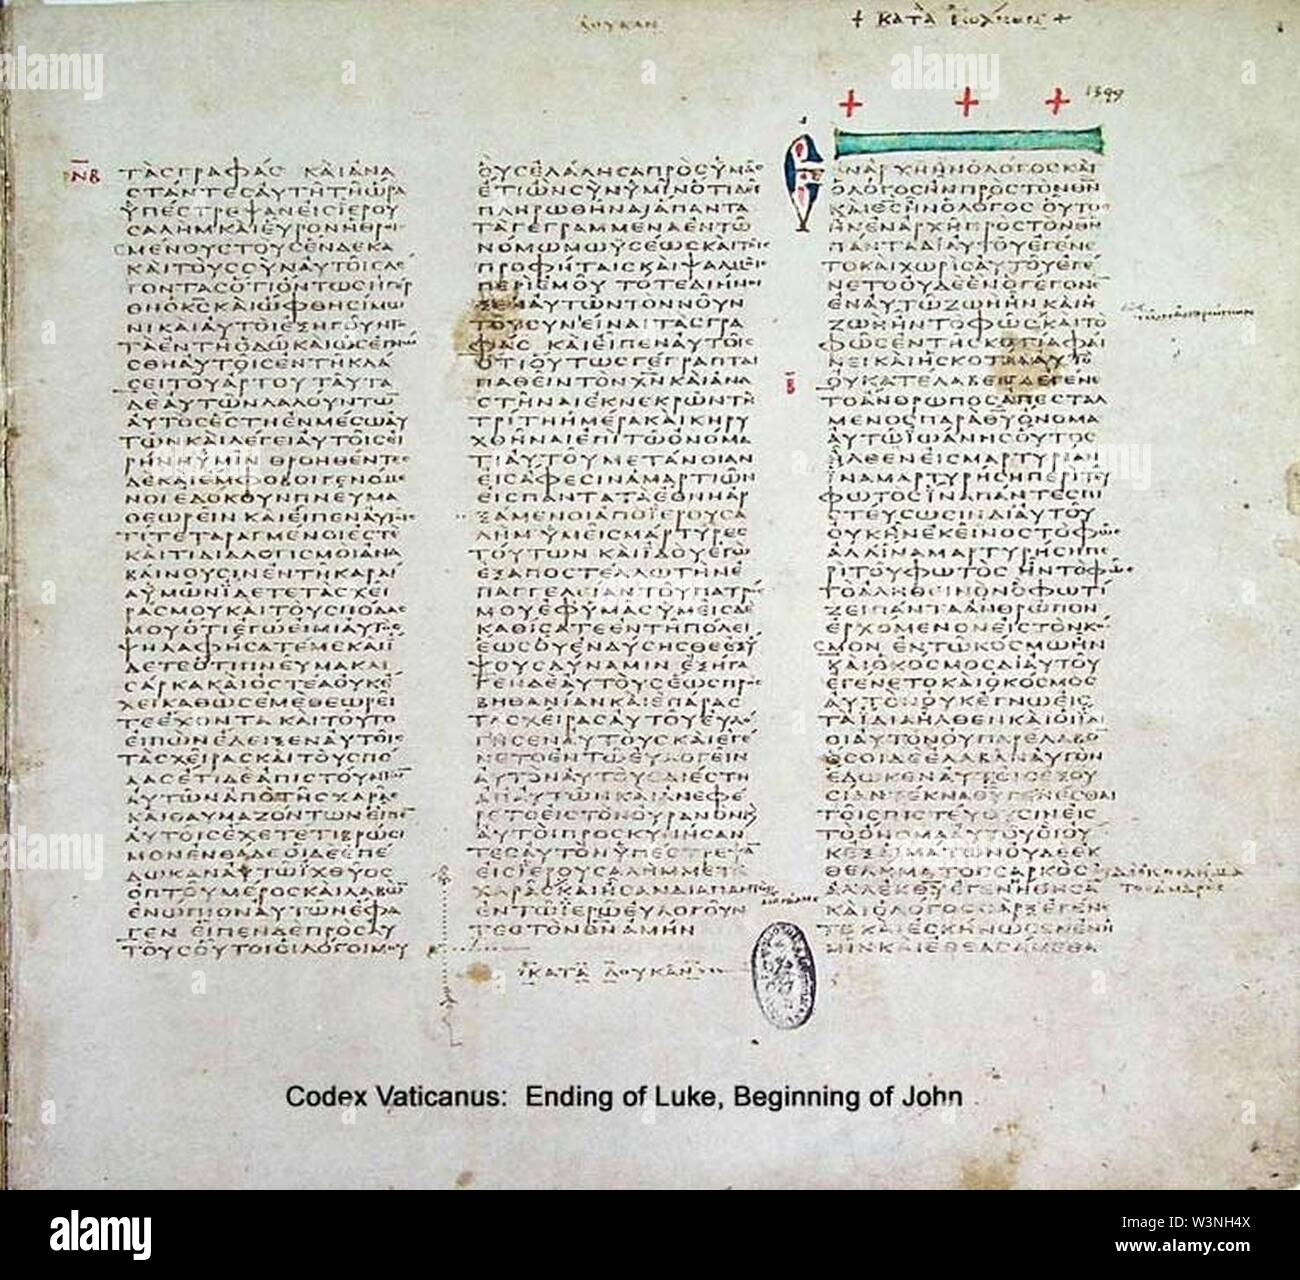 ΛΟΥΚΑΝ
+ ΚΑΤΑ ΙΩΑΝΝΗΝ +
1349
ΝΒ
ΤΑΣ ΓΡΑΦΑΣ ΚΑΙ ΑΝΑ
ϹΤΑΝΤΕϹ ΑΥΤΗ ΤΗ ΩΡΑ
ΥΠΕϹΤΡΕΨΑΝ ΕΙϹ ΙΕΡΟΥ
ϹΑΛΗΜ ΚΑΙ ΕΥΡΟΝ ΗΘΡΟΙ
ϹΜΕΝΟΥϹ ΤΟΥϹ ΕΝΔΕΚΑ
ΚΑΙ ΤΟΥϹ ϹΥΝ ΑΥΤΟΙϹ ΛΕ
ΓΟΝΤΑϹ ΟΤΙ ΟΝΤΩϹ ΗΓΕΡ
ΘΗ Ο ΚϹ ΚΑΙ ΩΦΘΗ ϹΙΜΩ
ΝΙ ΚΑΙ ΑΥΤΟΙ ΕΞΗΓΟΥΝΤ
ΤΑ ΕΝ ΤΗ ΟΔΩ ΚΑΙ ΩϹ ΕΓΝΩ
ϹΘΗ ΑΥΤΟΙϹ ΕΝ ΤΗ ΚΛΑ
ϹΕΙ ΤΟΥ ΑΡΤΟΥ ΤΑΥΤΑ
ΔΕ ΑΥΤΩΝ ΛΑΛΟΥΝΤΩ
ΑΥΤΟϹ ΕϹΤΗ ΕΝ ΜΕϹΩ ΑΥ
ΤΩΝ ΚΑΙ ΛΕΓΕΙ ΑΥΤΟΙϹ ΕΙ
ΡΗΝΗ ΥΜΙΝ ΘΡΟΗΘΕΝΤΕϹ
ΔΕ ΚΑΙ ΕΜΦΟΒΟΙ ΓΕΝΟΜΕ
ΝΟΙ ΕΔΟΚΟΥΝ ΠΝΕΥΜΑ
ΘΕΩΡΕΙΝ ΚΑΙ ΕΙΠΕΝ ΑΥΤΟΙϹ
ΤΙ ΤΕΤΑΡΑΓΜΕΝΟΙ ΕϹΤΕ
ΚΑΙ ΤΙ ΔΙΑΛΟΓΙϹΜΟΙ ΑΝΑ
ΒΑΙΝΟΥϹΙΝ ΕΝ ΤΗ ΚΑΡΔΙ
Α ΥΜΩΝ ΙΔΕΤΕ ΤΑϹ ΧΕΙ
ΡΑϹ ΜΟΥ ΚΑΙ ΤΟΥϹ ΠΟΔΑϹ
ΜΟΥ ΟΤΙ ΕΓΩ ΕΙΜΙ ΑΥΤΟϹ
ΨΗΛΑΦΗϹΑΤΕ ΜΕ ΚΑΙ Ι
ΔΕΤΕ ΟΤΙ ΠΝΕΥΜΑ ΚΑΙ
ϹΑΡΚΑ ΚΑΙ ΟϹΤΕΑ ΟΥΚ Ε
ΧΕΙ ΚΑΘΩϹ ΕΜΕ ΘΕΩΡΕΙ
ΤΕ ΕΧΟΝΤΑ ΚΑΙ ΤΟΥΤΟ
ΕΙΠΩΝ ΕΔΕΙΞΕΝ ΑΥΤΟΙϹ
ΤΑϹ ΧΕΙΡΑϹ ΚΑΙ ΤΟΥϹ ΠΟ
ΔΑϹ ΕΤΙ ΔΕ ΑΠΙϹΤΟΥΝΤΩ
ΑΥΤΩΝ ΑΠΟ ΤΗϹ ΧΑΡΑϹ
ΚΑΙ ΘΑΥΜΑΖΟΝΤΩΝ ΕΙΠΕ
ΑΥΤΟΙϹ ΕΧΕΤΕ ΤΙ ΒΡΩϹΙ
ΜΟΝ ΕΝΘΑΔΕ ΟΙ ΔΕ ΕΠΕ
ΔΩΚΑΝ ΑΥΤΩ ΙΧΘΥΟϹ
ΟΠΤΟΥ ΜΕΡΟϹ ΚΑΙ ΛΑΒΩ
ΕΝΩΠΙΟΝ ΑΥΤΩΝ ΕΦΑ
ΓΕΝ ΕΙΠΕΝ ΔΕ ΠΡΟϹ ΑΥ
ΤΟΥϹ ΟΥΤΟΙ ΟΙ ΛΟΓΟΙ ΜΟΥ
ΟΥϹ ΕΛΑΛΗϹΑ ΠΡΟϹ ΥΜΑϹ
ΕΤΙ ΩΝ ϹΥΝ ΥΜΙΝ ΟΤΙ ΔΕΙ
ΠΛΗΡΩΘΗΝΑΙ ΑΠΑΝΤΑ
ΤΑ ΓΕΓΡΑΜΜΕΝΑ ΕΝ ΤΩ
ΝΟΜΩ ΜΩΥϹΕΩϹ ΚΑΙ ΤΟΙϹ
ΠΡΟΦΗΤΑΙϹ ΚΑΙ ΨΑΛΜΟΙϹ
ΠΕΡΙ ΕΜΟΥ ΤΟΤΕ ΔΙΗΝΟΙ
ΞΕΝ ΑΥΤΩΝ ΤΟΝ ΝΟΥΝ
ΤΟΥ ϹΥΝΕΙΝΑΙ ΤΑϹ ΓΡΑ
ΦΑϹ ΚΑΙ ΕΙΠΕΝ ΑΥΤΟΙϹ
ΟΤΙ ΟΥΤΩϹ ΓΕΓΡΑΠΤΑΙ
ΠΑΘΕΙΝ ΤΟΝ ΧΝ ΚΑΙ ΑΝΑ
ϹΤΗΝΑΙ ΕΚ ΝΕΚΡΩΝ ΤΗ
ΤΡΙΤΗ ΗΜΕΡΑ ΚΑΙ ΚΗΡΥ
ΧΘΗΝΑΙ ΕΠΙ ΤΩ ΟΝΟΜΑ
ΤΙ ΑΥΤΟΥ ΜΕΤΑΝΟΙΑΝ
ΕΙϹ ΑΦΕϹΙΝ ΑΜΑΡΤΙΩΝ
ΕΙϹ ΠΑΝΤΑ ΤΑ ΕΘΝΗ ΑΡ
ΞΑΜΕΝΟΙ ΑΠΟ ΙΕΡΟΥϹΑ
ΛΗΜ ΥΜΕΙϹ ΜΑΡΤΥΡΕϹ
ΤΟΥΤΩΝ ΚΑΙ ΙΔΟΥ ΕΓΩ
ΕΞΑΠΟϹΤΕΛΛΩ ΤΗΝ Ε
ΠΑΓΓΕΛΕΙΑΝ ΤΟΥ ΠΑΤΡΟϹ
ΜΟΥ ΕΦ ΥΜΑϹ ΥΜΕΙϹ ΔΕ
ΚΑΘΙϹΑΤΕ ΕΝ ΤΗ ΠΟΛΕΙ
ΕΩϹ ΟΥ ΕΝΔΥϹΗϹΘΕ ΕΞ Υ
ΨΟΥϹ ΔΥΝΑΜΙΝ ΕΞΗΓΑ
ΓΕΝ ΔΕ ΑΥΤΟΥϹ ΕΩϹ ΠΡΟϹ
ΒΗΘΑΝΙΑΝ ΚΑΙ ΕΠΑΡΑϹ
ΤΑϹ ΧΕΙΡΑϹ ΑΥΤΟΥ ΕΥΛΟ
ΓΗϹΕΝ ΑΥΤΟΥϹ ΚΑΙ ΕΓΕ
ΝΕΤΟ ΕΝ ΤΩ ΕΥΛΟΓΕΙΝ
ΑΥΤΟΝ ΑΥΤΟΥϹ ΔΙΕϹΤΗ
ΑΠ ΑΥΤΩΝ ΚΑΙ ΑΝΕΦΕ
ΡΕΤΟ ΕΙϹ ΤΟΝ ΟΥΡΑΝΟΝ Κ
ΑΥΤΟΙ ΠΡΟϹΚΥΝΗϹΑΝ
ΤΕϹ ΑΥΤΟΝ ΥΠΕϹΤΡΕΨΑ
ΕΙϹ ΙΕΡΟΥϹΑΛΗΜ ΜΕΤΑ
ΧΑΡΑϹ ΚΑΙ ΗϹΑΝ ΔΙΑΠΑΝΤΟϹ
ΕΝ ΤΩ ΙΕΡΩ ΕΥΛΟΓΟΥΝ
ΤΕϹ ΤΟΝ ΘΝ ΑΜΗΝ
ΚΑΤΑ ΛΟΥΚΑΝ
ΕΝ ΑΡΧΗ ΗΝ Ο ΛΟΓΟϹ ΚΑΙ
Ο ΛΟΓΟϹ ΗΝ ΠΡΟϹ ΤΟΝ ΘΝ
ΚΑΙ ΘϹ ΗΝ Ο ΛΟΓΟϹ ΟΥΤΟϹ
ΗΝ ΕΝ ΑΡΧΗ ΠΡΟϹ ΤΟΝ ΘΝ
ΠΑΝΤΑ ΔΙ ΑΥΤΟΥ ΕΓΕΝΕ
ΤΟ ΚΑΙ ΧΩΡΙϹ ΑΥΤΟΥ ΕΓΕ
ΝΕΤΟ ΟΥΔΕ ΕΝ Ο ΓΕΓΟΝΕ
ΕΝ ΑΥΤΩ ΖΩΗ ΗΝ ΚΑΙ Η
ΖΩΗ ΗΝ ΤΟ ΦΩϹ ΚΑΙ ΤΟ
ΦΩϹ ΕΝ ΤΗ ϹΚΟΤΙΑ ΦΑΙ
ΝΕΙ ΚΑΙ Η ϹΚΟΤΙΑ ΑΥΤΟ
Β
ΟΥ ΚΑΤΕΛΑΒΕΝ ΕΓΕΝΕ
ΤΟ ΑΝΘΡΩΠΟϹ ΑΠΕϹΤΑΛ
ΜΕΝΟϹ ΠΑΡΑ ΘΥ ΟΝΟΜΑ
ΑΥΤΩ ΙΩΑΝΗϹ ΟΥΤΟϹ
ΗΛΘΕΝ ΕΙϹ ΜΑΡΤΥΡΙΑΝ
ΙΝΑ ΜΑΡΤΥΡΗϹΗ ΠΕΡΙ ΤΟΥ
ΦΩΤΟϹ ΙΝΑ ΠΑΝΤΕϹ ΠΙ
ϹΤΕΥϹΩϹΙΝ ΔΙ ΑΥΤΟΥ
ΟΥΚ ΗΝ ΕΚΕΙΝΟϹ ΤΟ ΦΩϹ
ΑΛΛ ΙΝΑ ΜΑΡΤΥΡΗϹΗ ΠΕ
ΡΙ ΤΟΥ ΦΩΤΟϹ ΗΝ ΤΟ ΦΩϹ
ΤΟ ΑΛΗΘΕΙΝΟΝ Ο ΦΩΤΙ
ΖΕΙ ΠΑΝΤΑ ΑΝΘΡΩΠΟΝ
ΕΡΧΟΜΕΝΟΝ ΕΙϹ ΤΟΝ ΚΟ
ϹΜΟΝ ΕΝ ΤΩ ΚΟϹΜΩ ΗΝ
ΚΑΙ Ο ΚΟϹΜΟϹ ΔΙ ΑΥΤΟΥ
ΕΓΕΝΕΤΟ ΚΑΙ Ο ΚΟϹΜΟϹ
ΑΥΤΟΝ ΟΥΚ ΕΓΝΩ ΕΙϹ
ΤΑ ΙΔΙΑ ΗΛΘΕΝ ΚΑΙ ΟΙ ΙΔΙ
ΟΙ ΑΥΤΟΝ ΟΥ ΠΑΡΕΛΑΒΟ
ΟϹΟΙ ΔΕ ΕΛΑΒΑΝ ΑΥΤΟΝ
ΕΔΩΚΕΝ ΑΥΤΟΙϹ ΕΞΟΥ
ϹΙΑΝ ΤΕΚΝΑ ΘΥ ΓΕΝΕϹΘΑΙ
ΤΟΙϹ ΠΙϹΤΕΥΟΥϹΙΝ ΕΙϹ
ΤΟ ΟΝΟΜΑ ΑΥΤΟΥ ΟΙ ΟΥ
Κ ΕΞ ΑΙΜΑΤΩΝ ΟΥΔΕ ΕΚ
ΘΕΛΗΜΑΤΟϹ ϹΑΡΚΟϹ
ΑΛΛ ΕΚ ΘΥ ΕΓΕΝΗΘΗϹΑ
ΚΑΙ Ο ΛΟΓΟϹ ϹΑΡΞ ΕΓΕΝΕ
ΤΟ ΚΑΙ ΕϹΚΗΝΩϹΕΝ ΕΝ Η
ΜΙΝ ΚΑΙ ΕΘΕΑϹΑΜΕΘΑ
Codex Vaticanus: Ending of Luke, Beginning of John
alamy
Image ID: W3NH4X
www.alamy.com